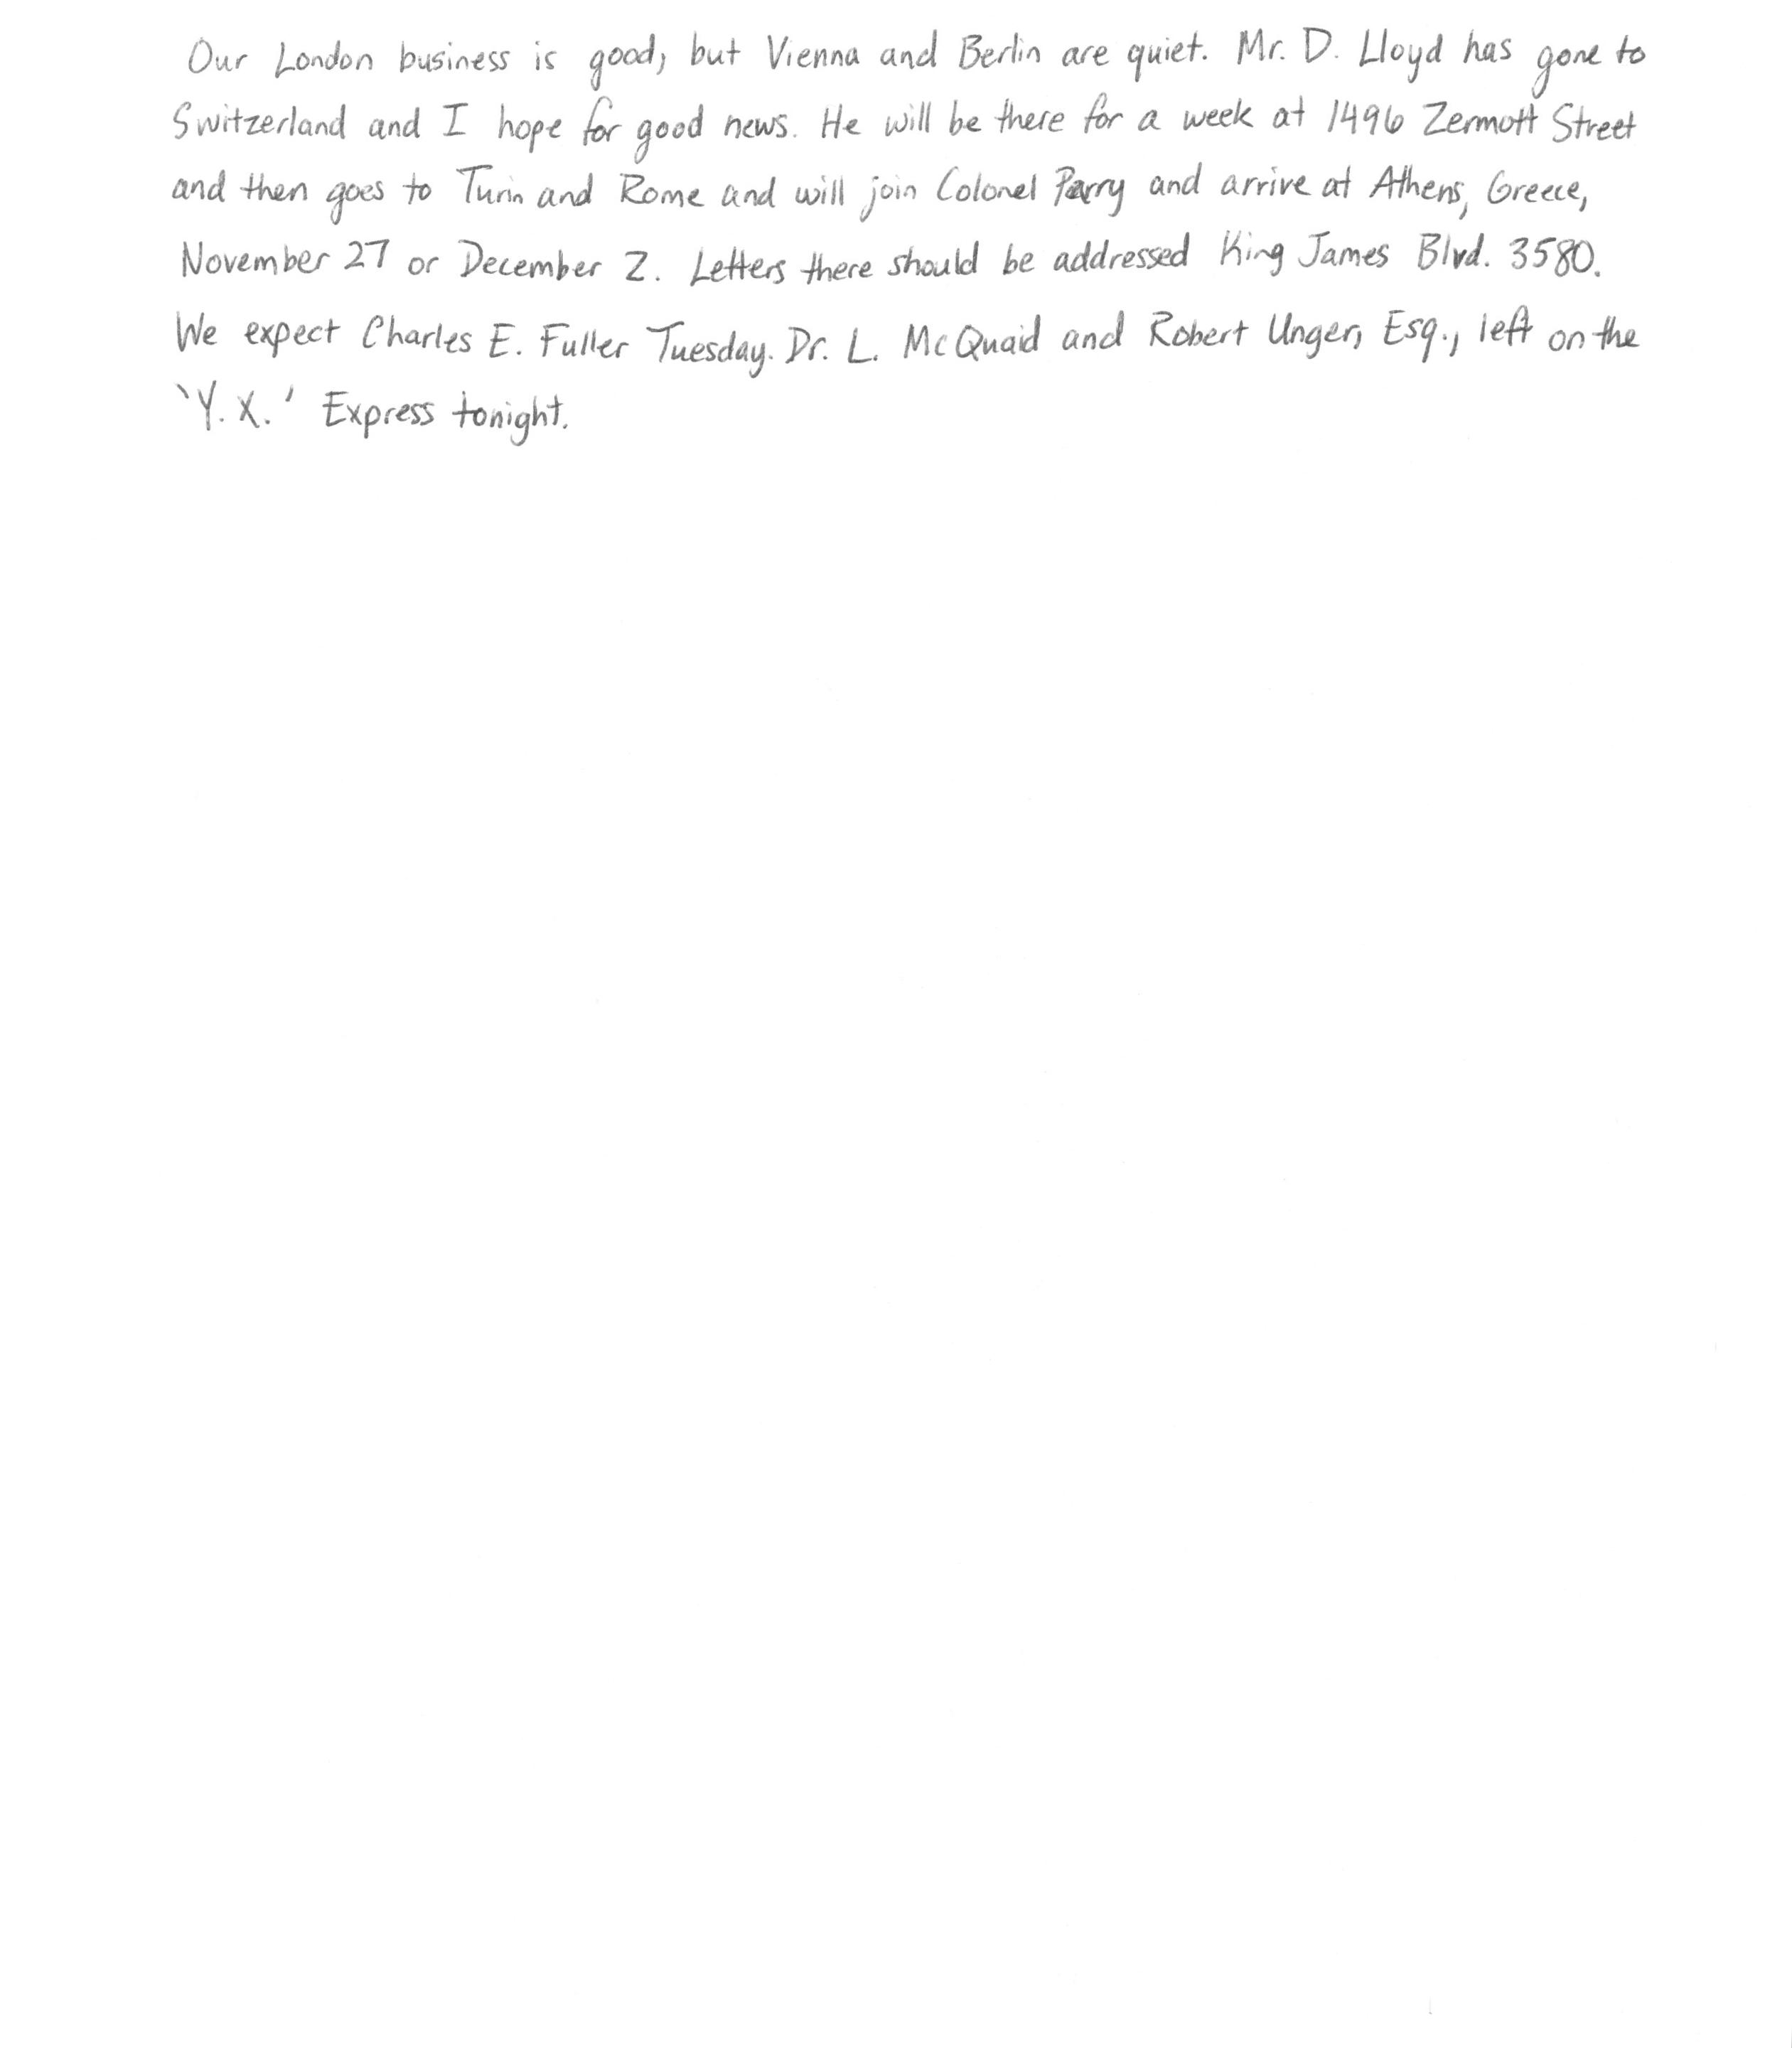 Our London business is good, but Vienna and Berlin are quiet. Mr. D. Lloyd has gone to
Switzerland and I hope for good news. He will be there for a week at 1496 Zermott Street
and then goes to Turin and Rome and will join Colonel Parry and arrive at Athens, Greece,
November 27 or December 2. Letters there should be addressed King James Blvd. 3580.
We expect Charles E. Fuller Tuesday. Dr. L. McQuaid and Robert Unger, Esq., left on the
'Y. X.' Express tonight.